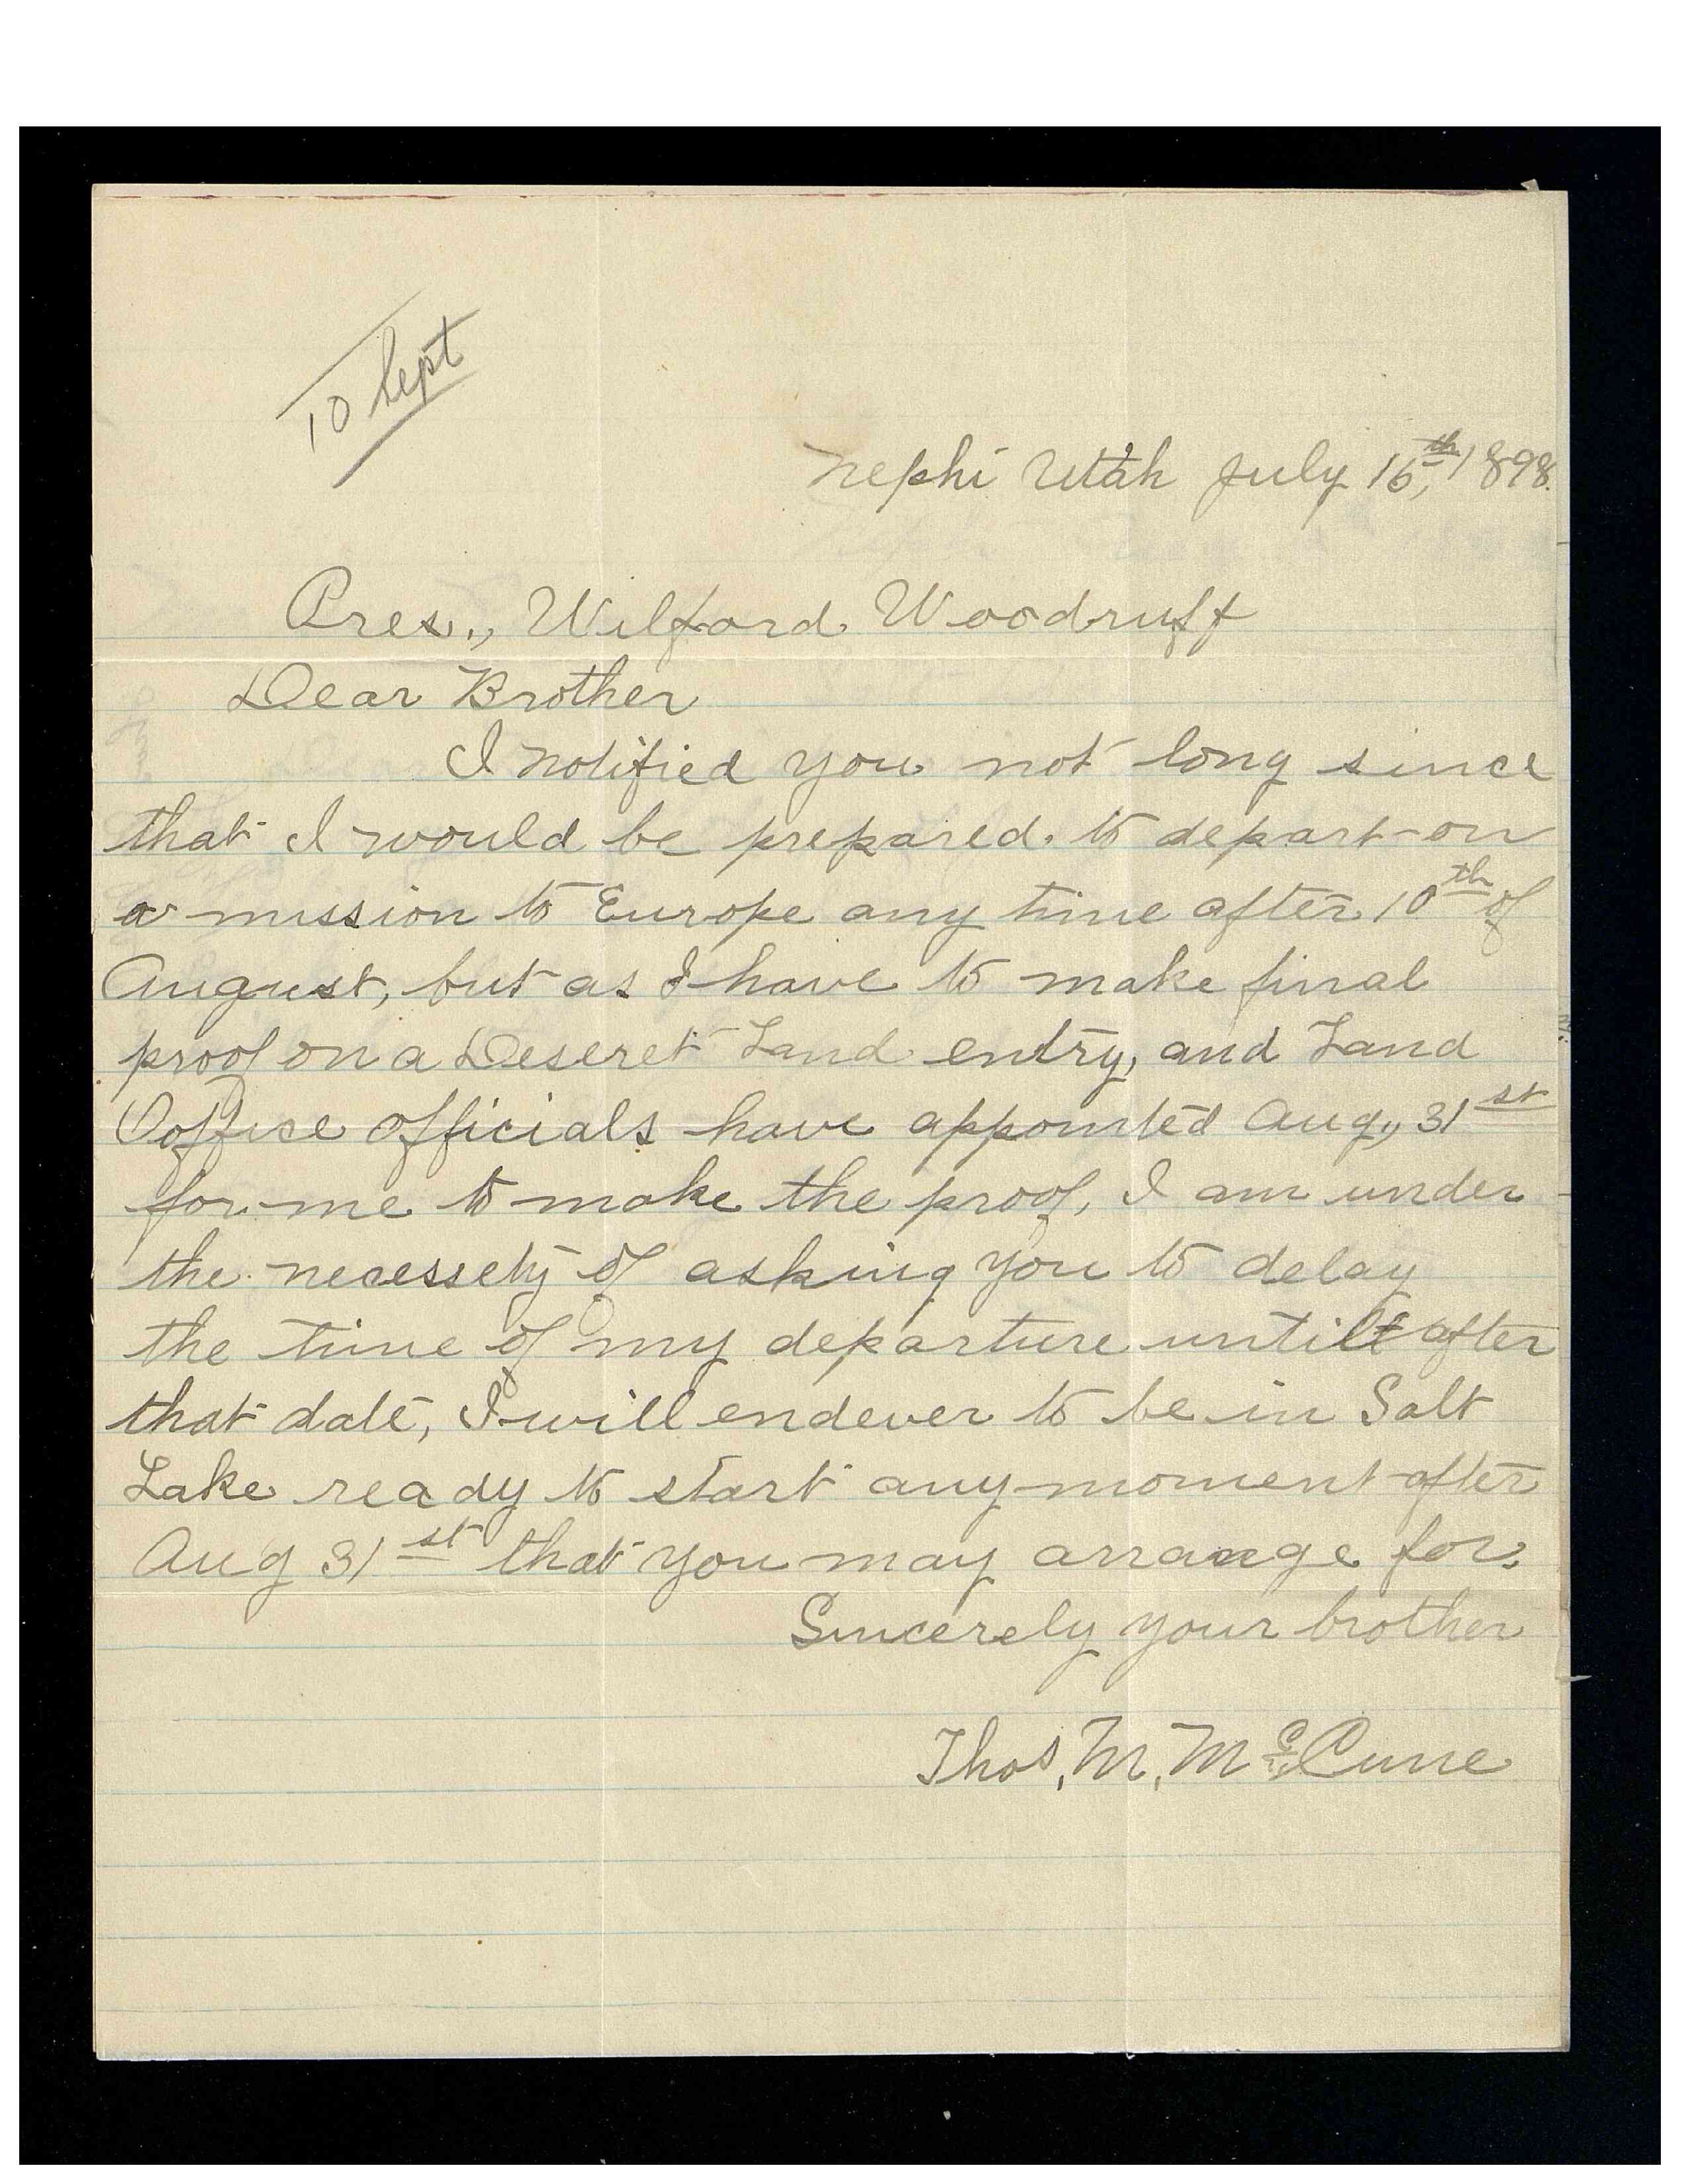 10 Sept
Nephi Utah July 16th, 1898.
Pres., Wilford Woodruff
Dear Brother
I notified you not long since
that I would be prepared. to depart on
a mission to Europe any time after 10th of
August, but as I have to make final
proof on a Deseret Land entry, and Land
Ooffice officials have appointed Aug,, 31st
for me to make the proof, I am under
the necessety of asking you to delay
the time of my departure untill after
that date, I will endever to be in Salt
Lake ready to start any moment after
Aug 31st that you may arrange for.
Sincerely your brother
Thos, M, McCune